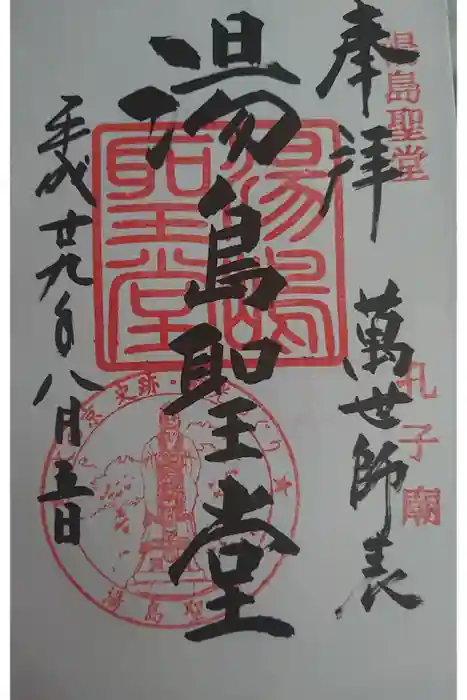 奉拝
湯島聖堂
萬世師表
孔子廟
湯島聖堂
湯島聖堂
平成廿九年八月五日
史跡
湯島聖